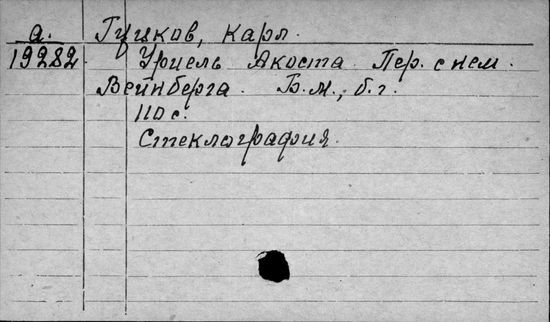 а. Гуцков, Карл.
19282 Уриель Акоста. Пер. с нем.
Вейнберга. Б.м., б.г.
110 с.
Стеклография.